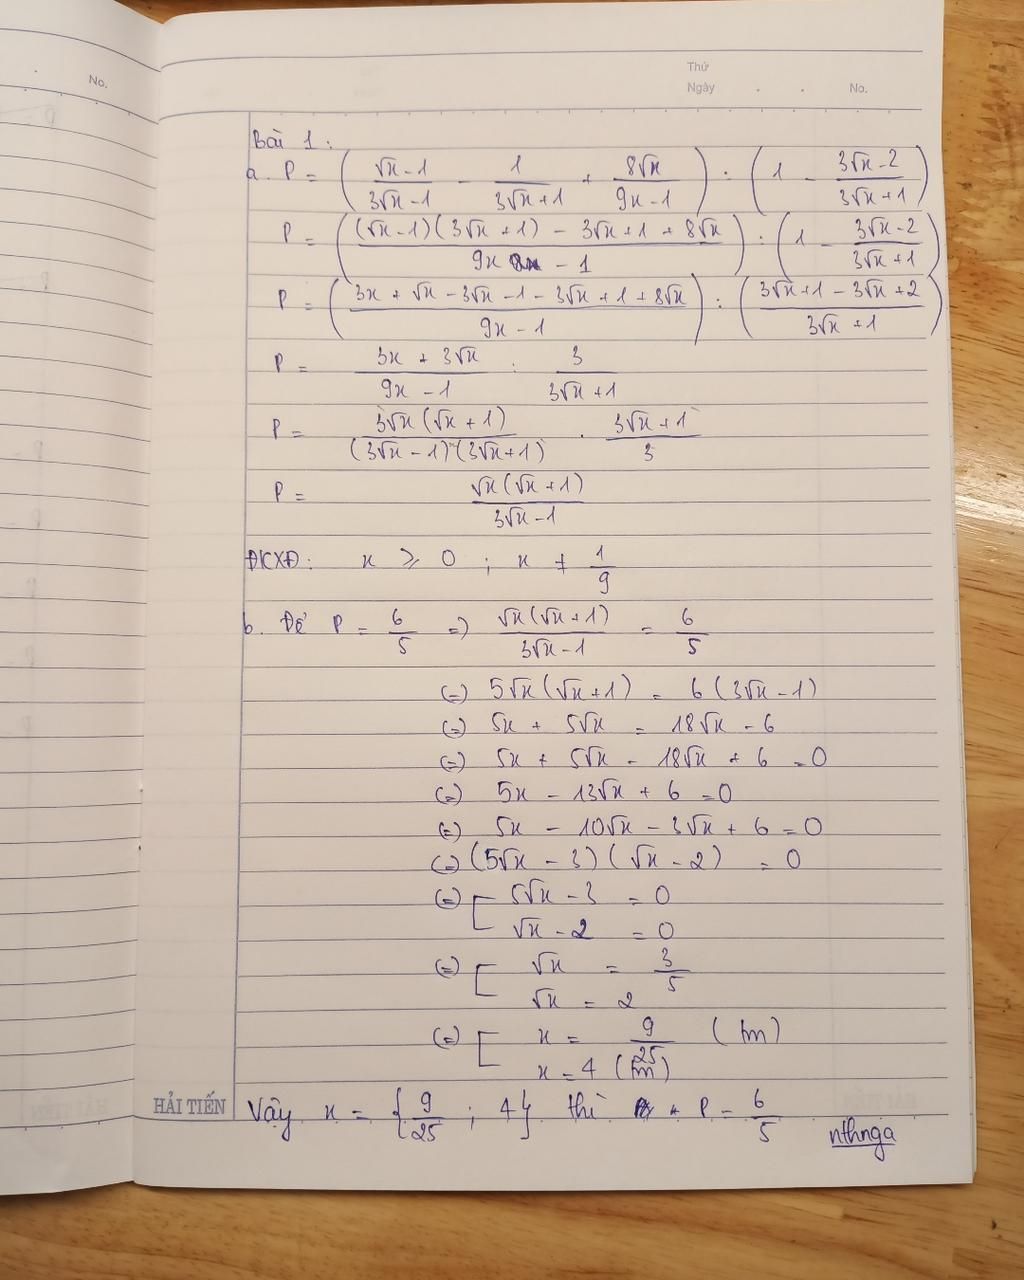 No.
Thứ
Ngày . . No.
Bài 1:
a. P = ( (√x - 1)/(3√x - 1) - 1/(3√x + 1) + 8√x/(9x - 1) ) : ( 1 - (3√x - 2)/(3√x + 1) )
P = ( ((√x - 1)(3√x + 1) - 3√x + 1 + 8√x)/(9x - 1) ) : ( 1 - (3√x - 2)/(3√x + 1) )
P = ( (3x + √x - 3√x - 1 - 3√x + 1 + 8√x)/(9x - 1) ) : ( (3√x + 1 - 3√x + 2)/(3√x + 1) )
P = (3x + 3√x)/(9x - 1) : 3/(3√x + 1)
P = 3√x(√x + 1)/((3√x - 1)(3√x + 1)) . (3√x + 1)/3
P = √x(√x + 1)/(3√x - 1)
ĐKXĐ: x ≥ 0 ; x ≠ 1/9
b. Để P = 6/5 => √x(√x + 1)/(3√x - 1) = 6/5
(=) 5√x(√x + 1) = 6(3√x - 1)
(=) 5x + 5√x = 18√x - 6
(=) 5x + 5√x - 18√x + 6 = 0
(=) 5x - 13√x + 6 = 0
(=) 5x - 10√x - 3√x + 6 = 0
(=) (5√x - 3)(√x - 2) = 0
(=) [ 5√x - 3 = 0
√x - 2 = 0
(=) [ √x = 3/5
√x = 2
(=) [ x = 9/25 (tm)
x = 4 (tm)
HẢI TIẾN Vậy x = {9/25 ; 4} thì P = 6/5
nthnga